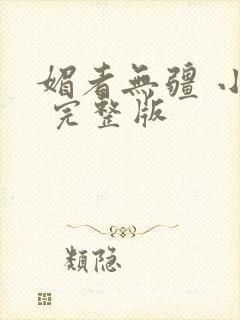 媚者無疆 小
完整版
類隐